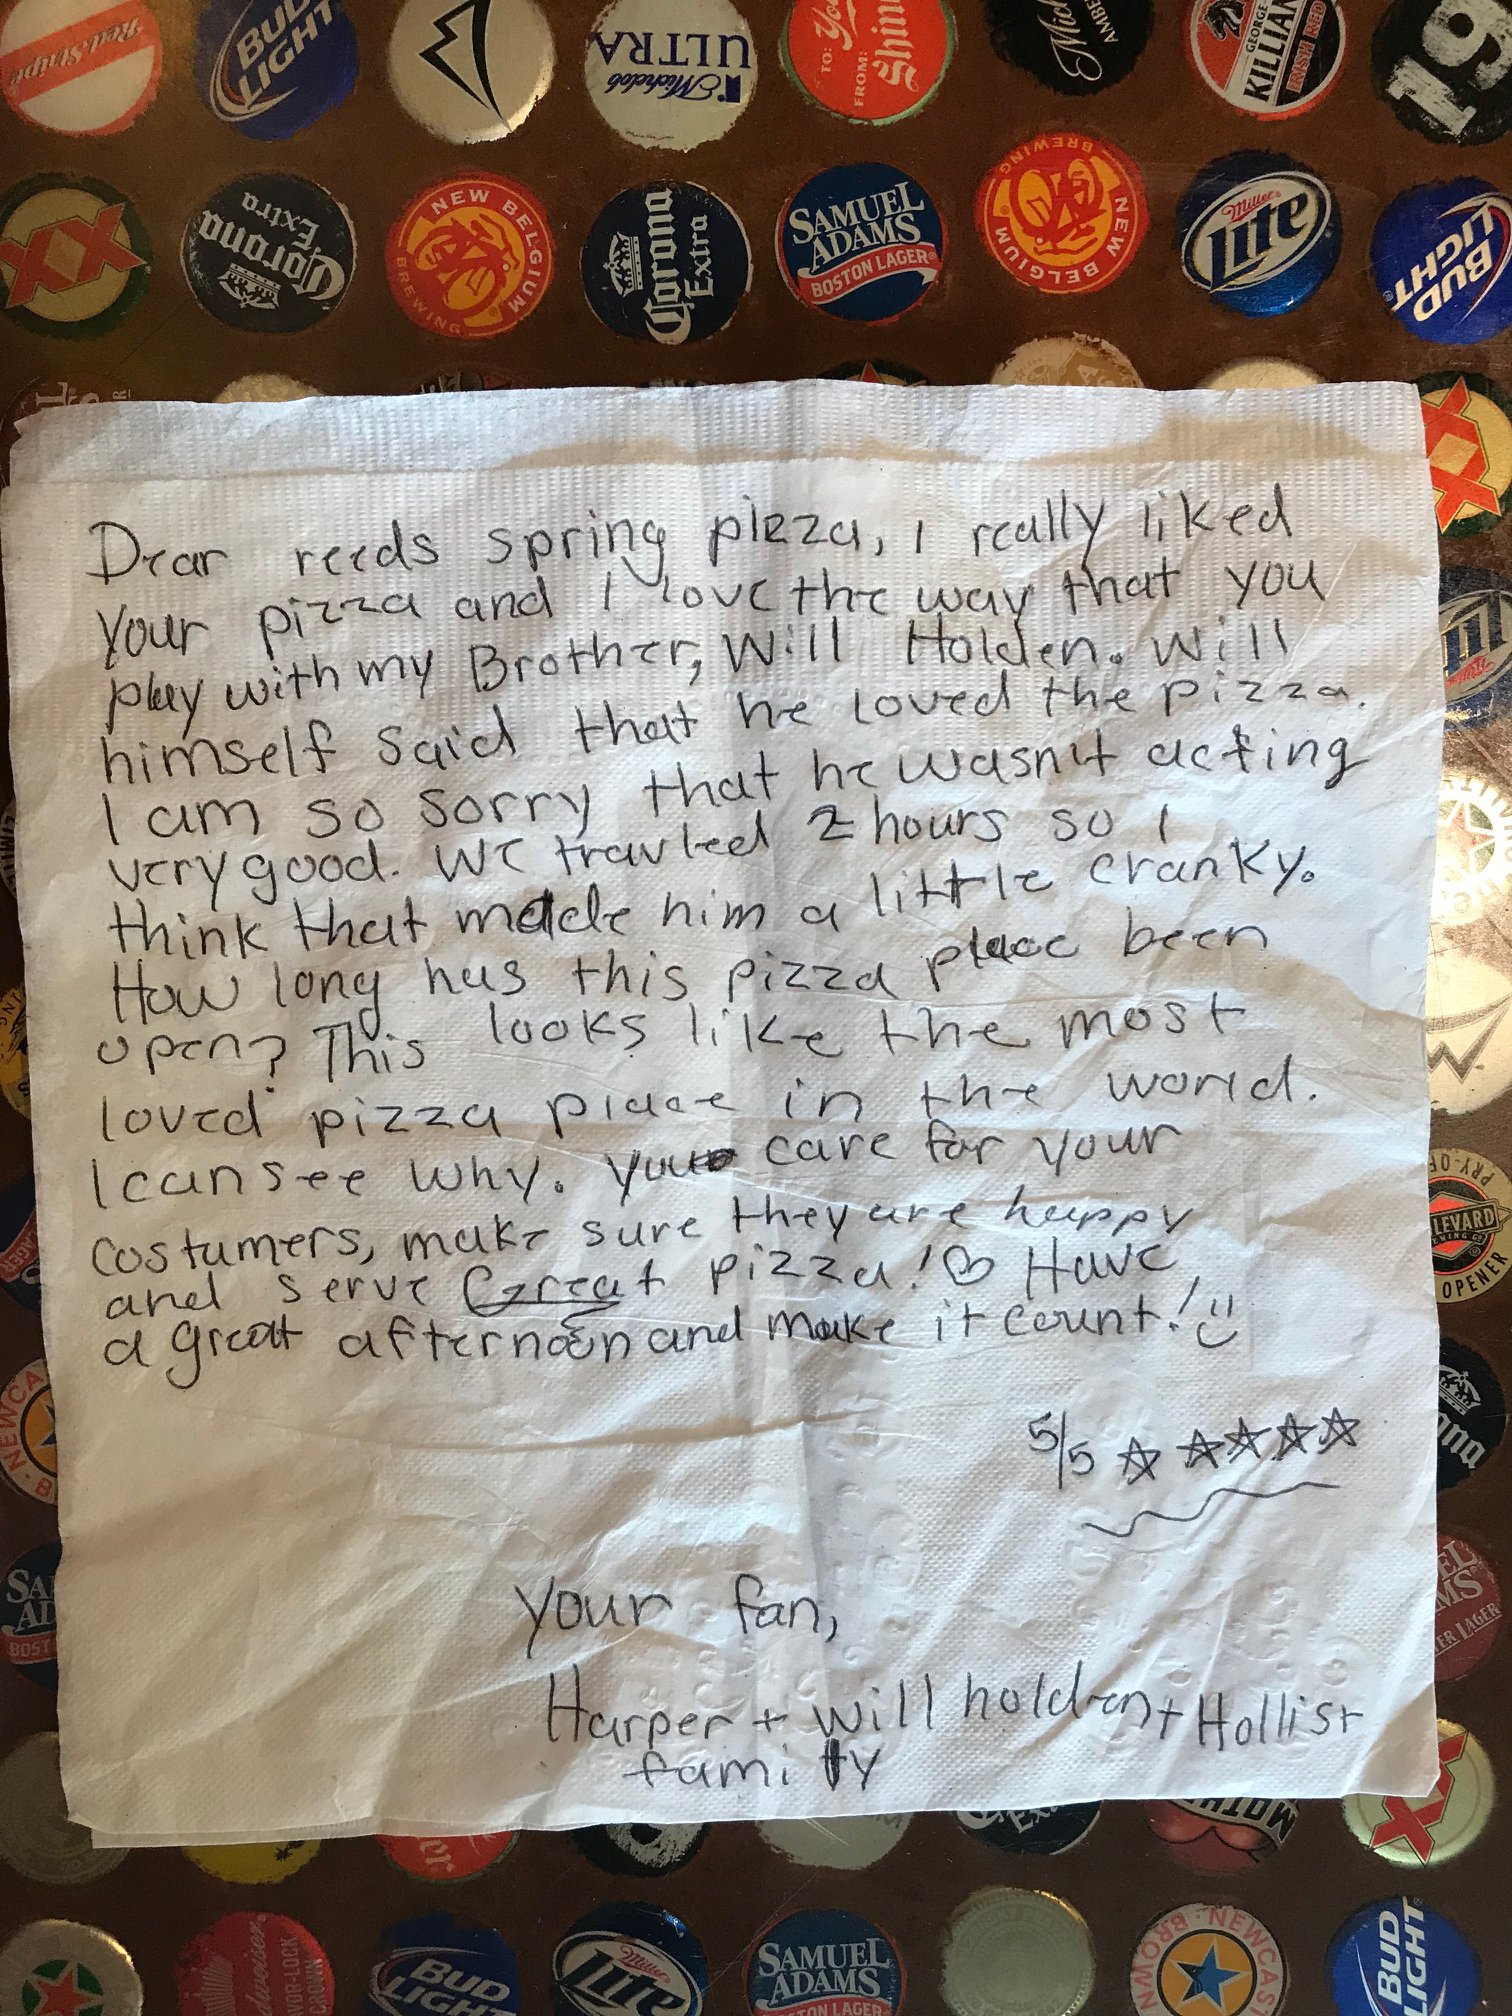 Red Stripe
BUD LIGHT
Michelob ULTRA
TO: You
FROM: Shin
Mich
AMBE
GEORGE KILLIAN
IRISH RED
19
XX
Corona Extra
NEW BELGIUM BREWING
Corona Extra
SAMUEL ADAMS
BOSTON LAGER
NEW BELGIUM BREWING
Miller Lite
BUD LIGHT
Dear reeds spring pizza, I really liked
your pizza and I love the way that you
play with my Brother, Will Holden. Will
himself said that he loved the pizza.
I am so sorry that he wasn't acting
very good. We travled 2 hours so I
think that made him a little cranky.
How long has this pizza place been
open? This looks like the most
loved pizza place in the world.
I can see why. You care for your
costumers, make sure they are happy
and serve Great pizza! ♡ Have
a great afternoon and make it count! :)
5/5 ☆ ☆ ☆ ☆ ☆
your fan,
Harper + will holden + Hollist
family
XX
PRY-OF
LEVARD
WING CO
OPENER
NEWCA
SA
AD
BOST
EL
MS
ER LAGER
MOTH
XX
Budweiser
BUD LIGHT
Miller Lite
SAMUEL ADAMS
STON LAGER
NEWCAST
BROWN
BUD LIGHT